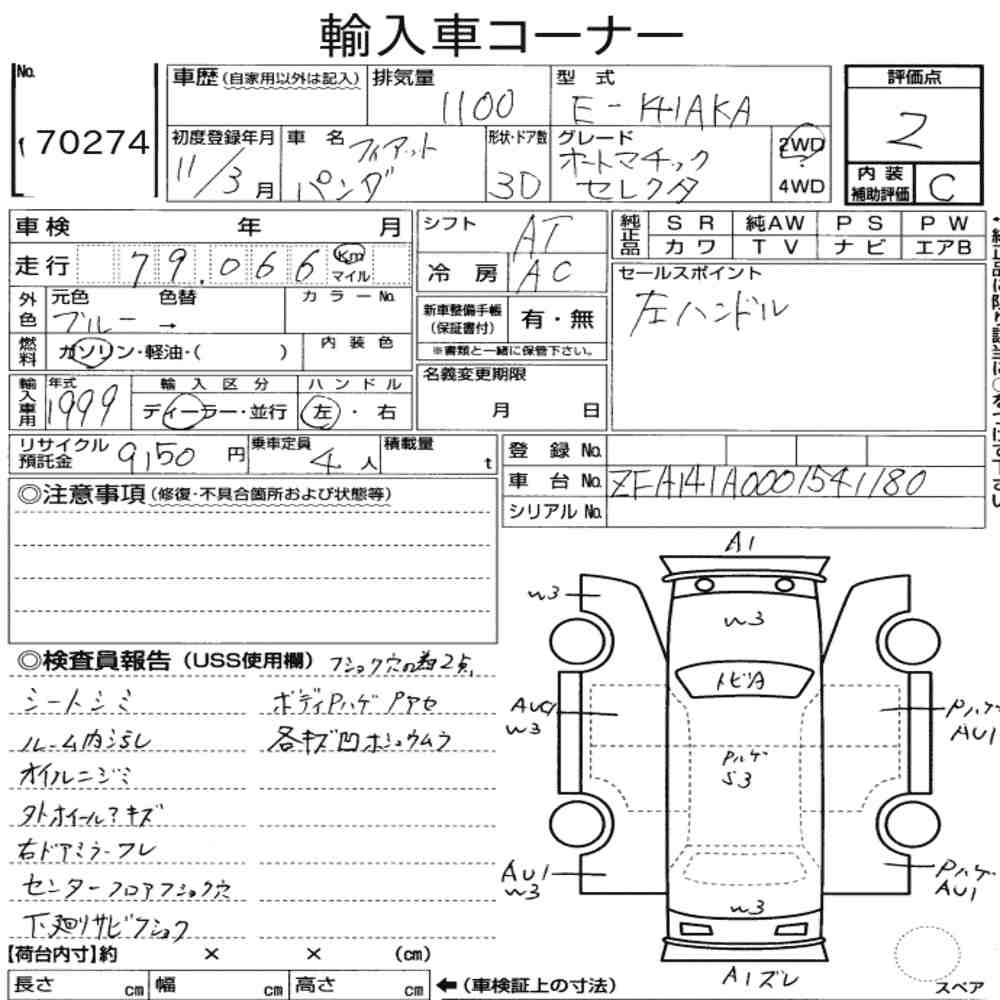 輸入車コーナー
No.
70274
車歴(自家用以外は記入)
排気量
1100
型 式
E-141AKA
評価点
2
初度登録年月
11/3月
車 名
フィアット
パンダ
形状・ドア数
3D
グレード
オートマチック
セレクタ
2WD
?
4WD
内 装
補助評価
C
車検 年 月
走行
79.066
Km
マイル
外色
元色
ブルー
色替
→
カラーNo.
燃料
ガソリン・軽油・( )
内装色
輸入車用
年式
1999
輸入区分
ディーラー・並行
ハンドル
左・右
シフト
AT
冷 房
AC
新車整備手帳
(保証書付)
有・無
※書類と一緒に保管下さい。
名義変更期限
月 日
純正品
SR
純AW
PS
PW
カワ
TV
ナビ
エアB
セールスポイント
左ハンドル
リサイクル
預託金
9,150円
乗車定員
4人
積載量
t
登 録 No.
車 台 No.
ZFA141A0001541180
シリアル No.
◎注意事項(修復・不具合箇所および状態等)
◎検査員報告(USS使用欄)
フショク穴の為2点
シートシミ
ボディPハゲ Pアセ
ルーム内ヨゴレ
各キズ凹ホシュウムラ
オイルニジミ
外ホイール?キズ
右ドアミラーフレ
センターフロアフショク穴
下廻りサビフショク
【荷台内寸】約 × × (cm)
長さ cm
幅 cm
高さ cm
←(車検証上の寸法)
A1
W3
W3
トビA
AU1
W3
Pハゲ
AU1
Pハゲ
S3
AU1
W3
Pハゲ
AU1
W3
A1ズレ
スペア